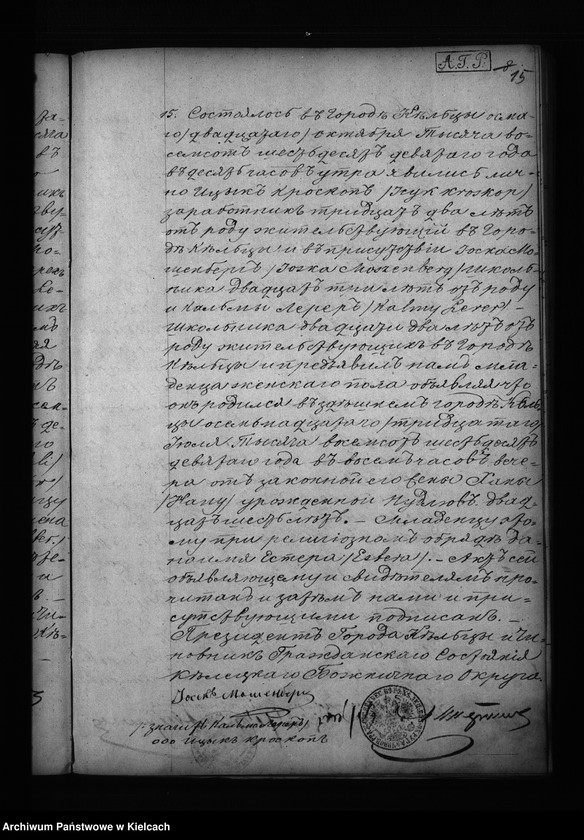 А.Г.Р.
15
15. Состоялось въ Городѣ Кѣльцы осма-
го/двадцатаго/октября тысяча во-
семсотъ шестьдесятъ девятаго года
въ десять часовъ утра явились лич-
но Ицыкъ Кроскопъ
заработникъ тридцать два лѣтъ
отъ роду жительствующій въ Горо-
дѣ Кѣльцы и въ присутствіи Іоска Мо-
шенберга /Joska Moszenberg/ Школь-
ника двадцать три лѣтъ отъ роду
и Кальмы Лереръ
Школьника двадцати два лѣтъ отъ
роду жительствующихъ въ Городѣ
Кѣльцы и предъявилъ намъ мла-
денца женскаго пола объявляя что
онъ родился въ здѣшнемъ городѣ Кѣль-
цы осемьнадцатаго/тридцатаго/
Іюля тысяча восемсотъ шестьдесятъ
девятаго года въ восемь часовъ вече-
ра отъ законной его жены Ханы
урожденной двад-
цать шесть лѣтъ. – Младенцу это-
му при религіозномъ обрядѣ да-
но имя Естера /Estera/. – Актъ сей
объявляющему и свидѣтелямъ про-
читанъ и затѣмъ нами и при-
сутствующими подписанъ. –
Президентъ Города Кѣльцы и Чи-
новникъ Гражданскаго Состоянія
Кѣлецкаго Божничнаго Округа
Іоскъ Мошенбергъ
ооо Ицыкъ Кроскопъ
Archiwum Państwowe w Kielcach